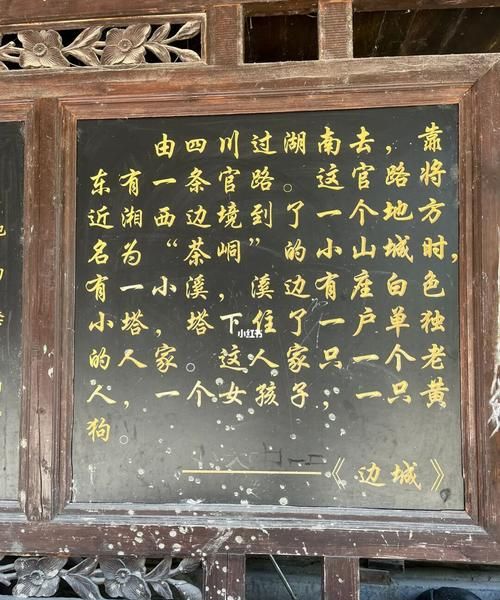 由四川过湖南去，靠
东有一条官路。这官路将
近湘西边境到了一个地方
名为“茶峒”的小山城时，
有一小溪，溪边有座白色
小塔，塔下住了一户单独
的人家。这人家只一个老
人，一个女孩子，一只黄
狗。
——《边城》
小红书